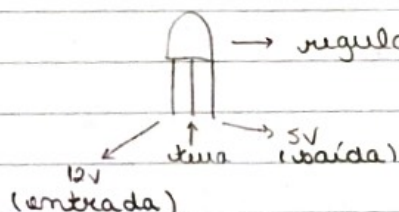 regulad
12V
(entrada)
terra
5V
(saída)